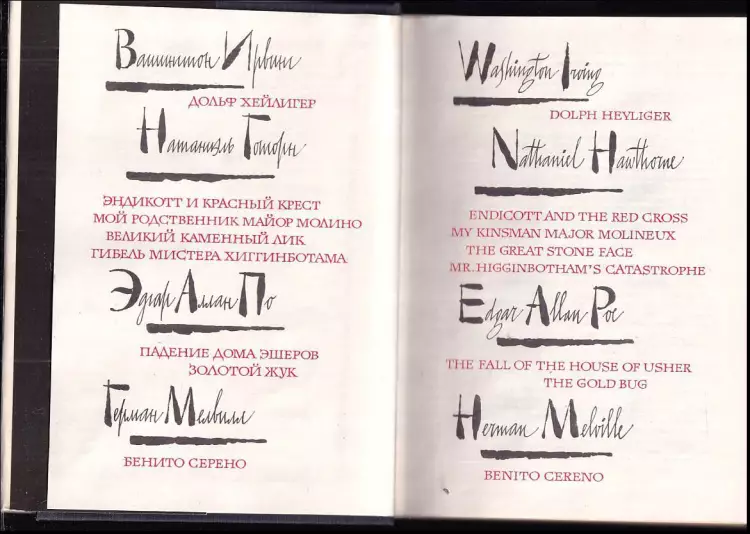 Вашингтон Ирвинг
ДОЛЬФ ХЕЙЛИГЕР
Натаниэль Готорн
ЭНДИКОТТ И КРАСНЫЙ КРЕСТ
МОЙ РОДСТВЕННИК МАЙОР МОЛИНО
ВЕЛИКИЙ КАМЕННЫЙ ЛИК
ГИБЕЛЬ МИСТЕРА ХИГГИНБОТАМА
Эдгар Аллан По
ПАДЕНИЕ ДОМА ЭШЕРОВ
ЗОЛОТОЙ ЖУК
Герман Мелвилл
БЕНИТО СЕРЕНО
Washington Irving
DOLPH HEYLIGER
Nathaniel Hawthorne
ENDICOTT AND THE RED CROSS
MY KINSMAN MAJOR MOLINEUX
THE GREAT STONE FACE
MR.HIGGINBOTHAM'S CATASTROPHE
Edgar Allan Poe
THE FALL OF THE HOUSE OF USHER
THE GOLD BUG
Herman Melville
BENITO CERENO